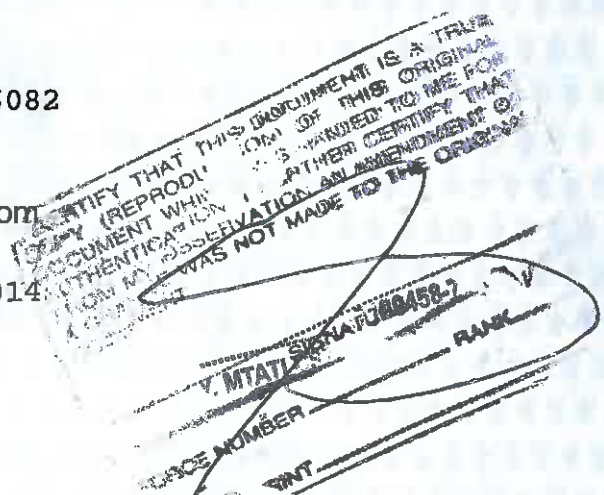 5082
om
014
CERTIFY THAT THIS DOCUMENT IS A TRUE
COPY (REPRODU ION) OF THIS ORIGINAL
DOCUMENT WHI S HANDED TO ME FOR
UTHENTICATION I RTHER CERTIFY THAT
FROM MY OBSERVATION AN AMENDMENT OR
WAS NOT MADE TO THE ORIGINAL
SIGNATU
Y. MTATI
RANK
NUMBER